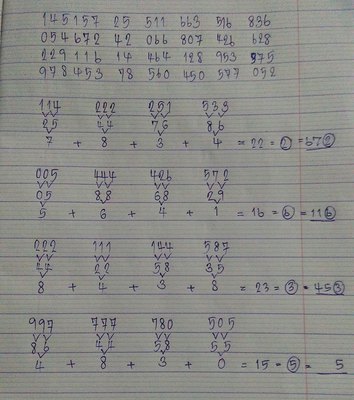 145157 25 511 663 516 836
054672 42 066 807 426 628
229116 14 464 128 953 975
978453 78 560 450 577 052
114 222 251 533
25 44 76 86
7 + 8 + 3 + 4 = 22 = 2 = 672
005 444 426 572
05 88 68 29
5 + 6 + 4 + 1 = 16 = 6 = 116
222 111 144 587
44 22 58 35
8 + 4 + 3 + 8 = 23 = 3 = 453
997 777 780 505
86 44 58 55
4 + 8 + 3 + 0 = 15 = 5 = 5